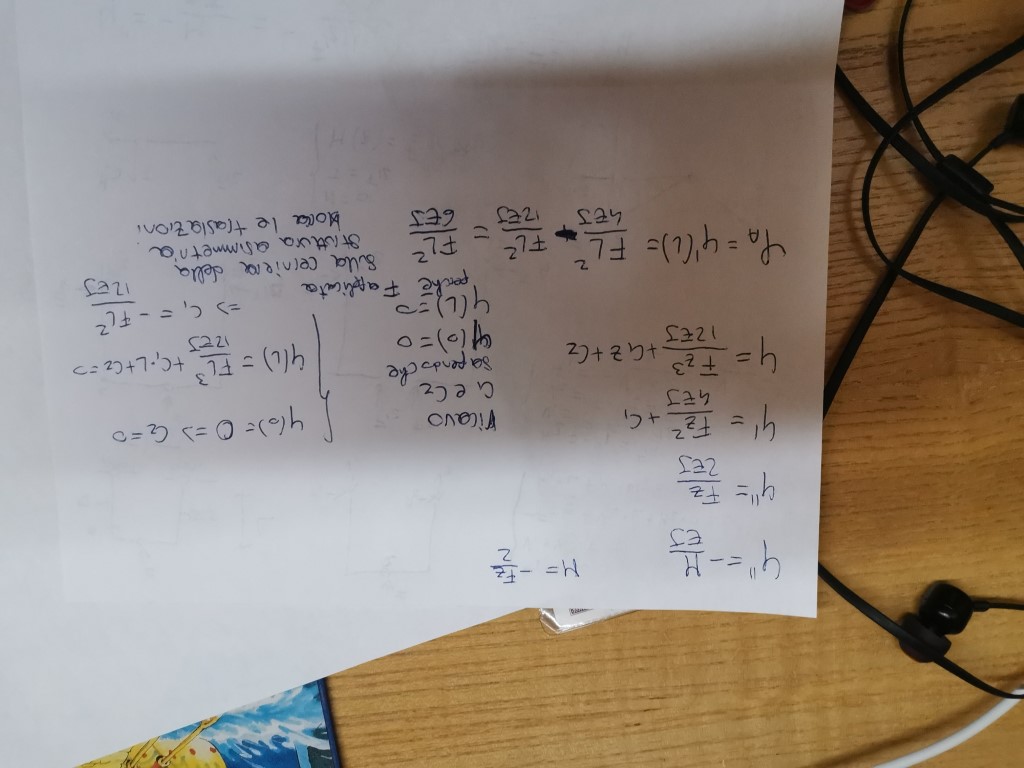 y'' = - M/EJ
M = - Fz/2
y'' = Fz/2EJ
y' = Fz²/4EJ + C₁
y = Fz³/12EJ + C₁z + C₂
ricavo
C₁ e C₂
sapendo che
y(0)=0
y(L)=0
perché F applicata
sulla cerniera della
struttura asimmetrica
blocca le traslazioni
y(0) = 0 => C₂=0
y(L) = FL³/12EJ + C₁·L + C₂ = 0
=> C₁ = - FL²/12EJ
φA = y'(L) = FL²/4EJ - FL²/12EJ = FL²/6EJ